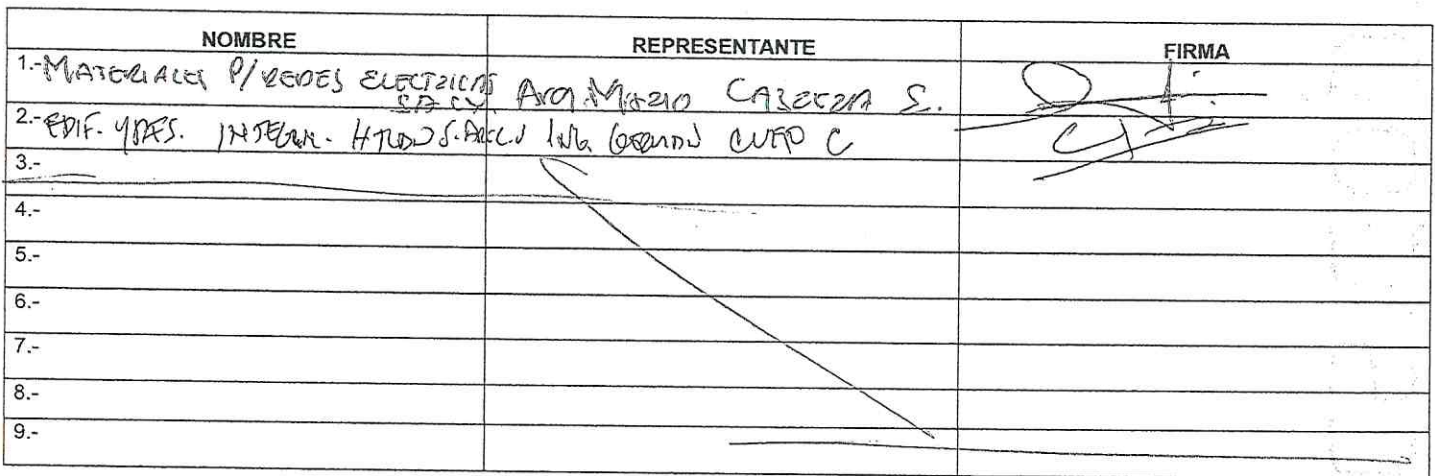 NOMBRE REPRESENTANTE FIRMA
1.- MATERIALES P/REDES ELECTRICAS
SA CV ARQ. MARIO CABEZZA S.
2.- EDIF. Y DES. ING. CUETO C
3.-
4.-
5.-
6.-
7.-
8.-
9.-